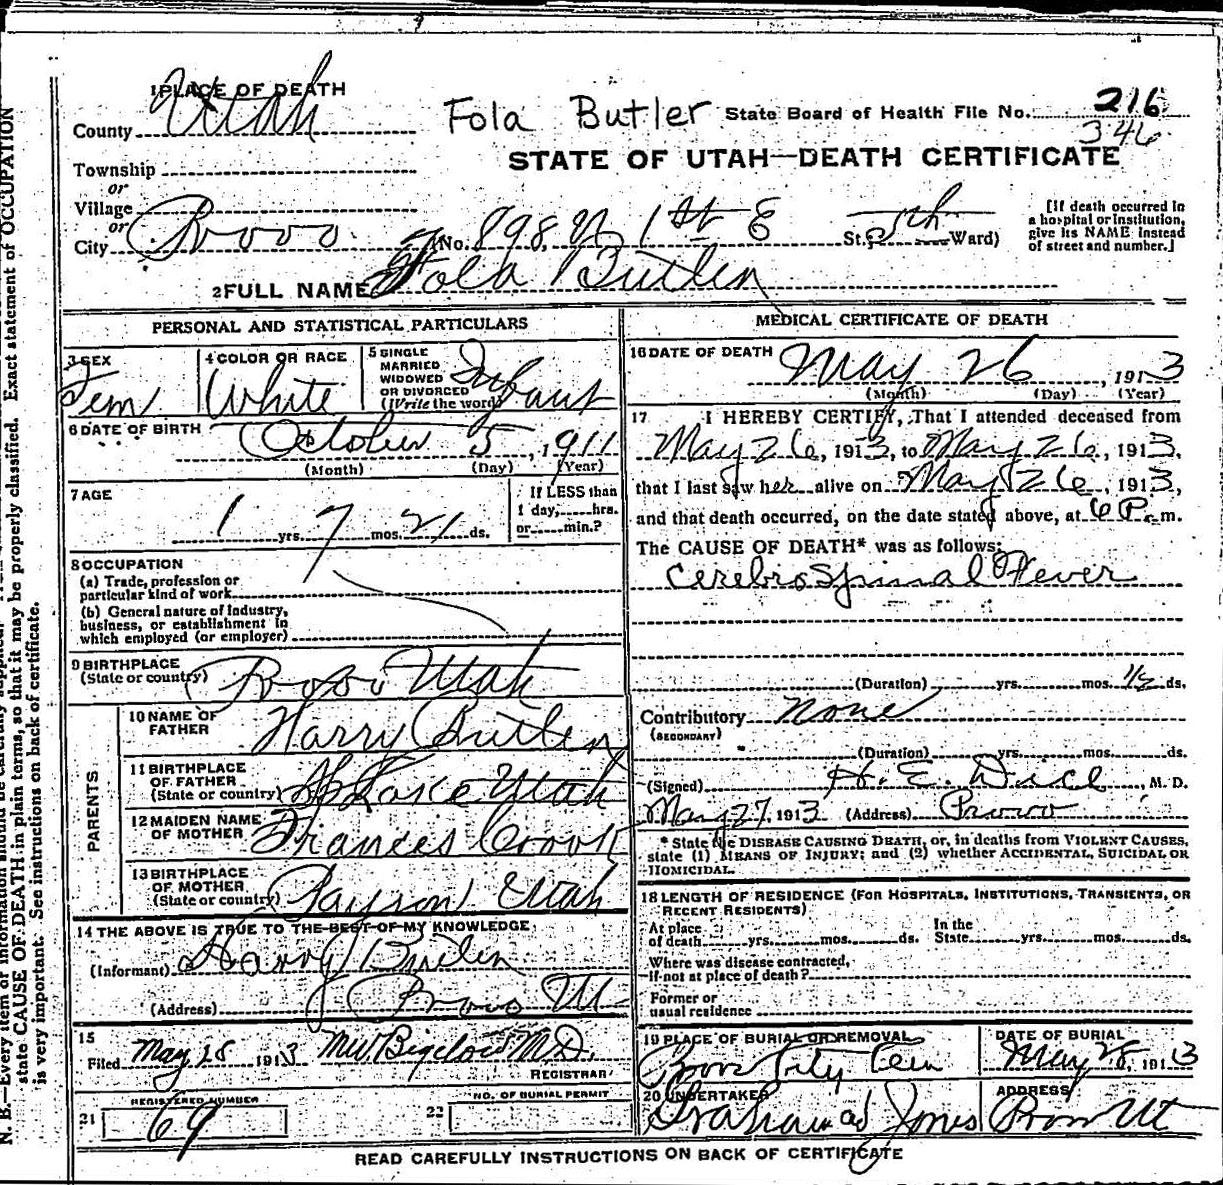 1 PLACE OF DEATH
County Utah
Fola Butler
State Board of Health File No. 216
346
STATE OF UTAH—DEATH CERTIFICATE
Township
or
Village
or
City Provo (No. 898 N 1st E St. 5th Ward)
[If death occurred in
a hospital or institution,
give its NAME instead
of street and number.]
2 FULL NAME Fola Butler
PERSONAL AND STATISTICAL PARTICULARS
3 SEX Fem
4 COLOR OR RACE White
5 SINGLE
MARRIED
WIDOWED
OR DIVORCED
(Write the word) Infant
6 DATE OF BIRTH October 5, 1911
(Month) (Day) (Year)
7 AGE
1 yrs. 7 mos. 21 ds.
If LESS than
1 day, hrs.
or min.?
8 OCCUPATION
(a) Trade, profession or
particular kind of work
(b) General nature of industry,
business, or establishment in
which employed (or employer)
9 BIRTHPLACE
(State or country) Provo Utah
PARENTS
10 NAME OF
FATHER Harry Butler
11 BIRTHPLACE
OF FATHER
(State or country) Sp Lake Utah
12 MAIDEN NAME
OF MOTHER Frances Crook
13 BIRTHPLACE
OF MOTHER
(State or country) Payson Utah
14 THE ABOVE IS TRUE TO THE BEST OF MY KNOWLEDGE
(Informant) Harry Butler
(Address) Provo Ut
15
Filed May 28 1913 MW Bigelow M.D.
REGISTRAR
21 REGISTERED NUMBER
69
22 NO. OF BURIAL PERMIT
MEDICAL CERTIFICATE OF DEATH
16 DATE OF DEATH May 26, 1913
(Month) (Day) (Year)
17 I HEREBY CERTIFY, That I attended deceased from
May 26, 1913, to May 26, 1913,
that I last saw her alive on May 26, 1913,
and that death occurred, on the date stated above, at 6 P. m.
The CAUSE OF DEATH* was as follows:
Cerebro Spinal Fever
(Duration) yrs. mos. 1/2 ds.
Contributory None
(SECONDARY)
(Duration) yrs. mos. ds.
(Signed) H. E. Dice, M. D.
May 27, 1913 (Address) Provo
* State the DISEASE CAUSING DEATH, or, in deaths from VIOLENT CAUSES,
state (1) MEANS OF INJURY; and (2) whether ACCIDENTAL, SUICIDAL OR
HOMICIDAL.
18 LENGTH OF RESIDENCE (FOR HOSPITALS, INSTITUTIONS, TRANSIENTS, OR
RECENT RESIDENTS)
At place
of death yrs. mos. ds.
In the
State yrs. mos. ds.
Where was disease contracted,
if not at place of death?
Former or
usual residence
19 PLACE OF BURIAL OR REMOVAL
Provo City Cem
DATE OF BURIAL
May 28, 1913
20 UNDERTAKER
Graham and Jones
ADDRESS
Provo Ut
READ CAREFULLY INSTRUCTIONS ON BACK OF CERTIFICATE
N. B.—Every item of information should be carefully supplied.
state CAUSE OF DEATH in plain terms, so that it may be properly classified. Exact statement of OCCUPATION
is very important. See instructions on back of certificate.